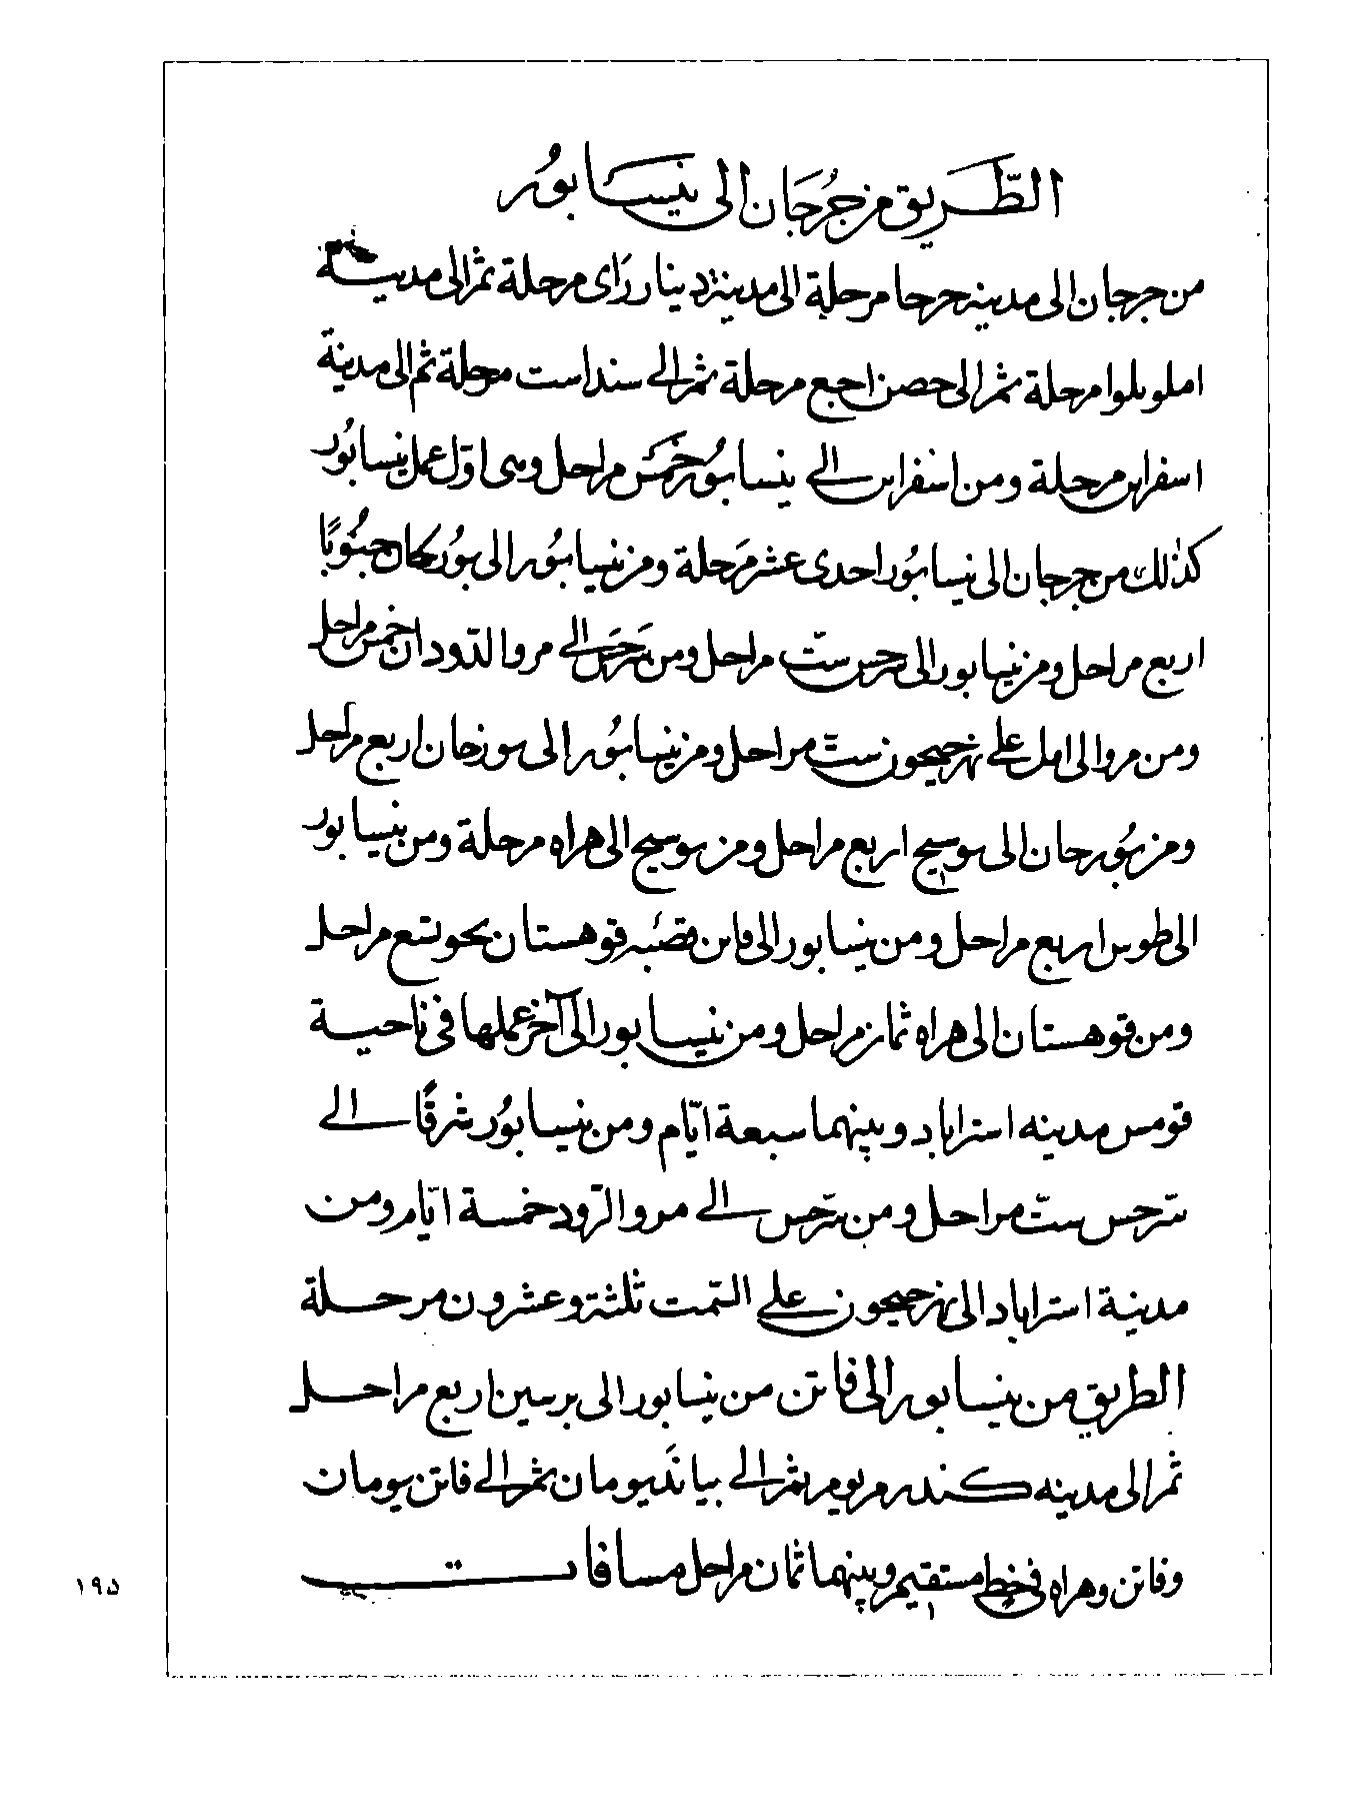 الطّريق من جُرجَان الى نيسابوُر
من جرجان الى مدينه حرحا مرحلة الى مدينة دينار زَاى مرحلة ثم الى مدينة
املوبلوا مرحلة ثم الى حصن اجبع مرحلة ثم الى سنداست مرحلة ثم الى مدينة
اسفراين مرحلة ومن اسفراين الى نيسابوُر خمَس مراحل وهى اوّل عمل نيسابوُر
كذٰلك من جرجان الى نيسابوُر احدى عشر مَرحلة ومن نيسابوُر الى بوُركان جنُوبًا
اربع مراحل ومن نيسابور الى سرخس ستّ مراحل ومن سَرخَس الى مرو الدّودان خمس مراحل
ومن مرو الى امل على نهر جيحون ستّ مراحل ومن نيسابوُر الى بوزجان اربع مراحل
ومن بوُرجان الى بوسيج اربع مراحل ومن بوسيج الى هراه مرحلة ومن نيسابور
الى طوس اربع مراحل ومن نيسابور الى قاين قصَبه قوهستان نحو تسع مراحل
ومن قوهستان الى هراه ثمان مراحل ومن نيسابور الى آخر عملها فى ناحية
قومس مدينه استراباد وبينهما سبعة ايّام ومن نيسابوُر شرقًا الى
سَرخس ستّ مراحل ومن سَرخس الى مرو الرّود خمسة ايّام ومن
مدينة استراباد الى نهر جيحون على السّمت ثلثة وعشرون مرحلة
الطريق من نيسابور الى قاين من نيسابور الى برسين اربع مراحل
ثم الى مدينه كندر مر يوم ثم الى بيانَد يومان ثم الى قاين يومان
وقاين وهراه فى خط مستقيم وبينهما ثمان مراحل مسافات
١٩٥